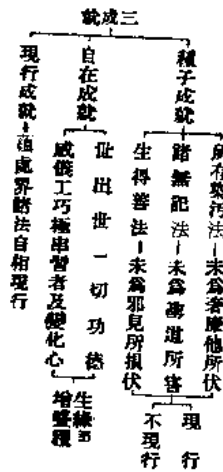 三成就
種子成就
所有染污法─未為奢摩他所伏
諸無記法─未為聖道所害
生得善法─未為邪見所損伏
現行
不現行
自在成就
世出世一切功德
威儀工巧極串習者及變化心
生緣所
增盛種
現行成就─蘊處界諸法自相現行